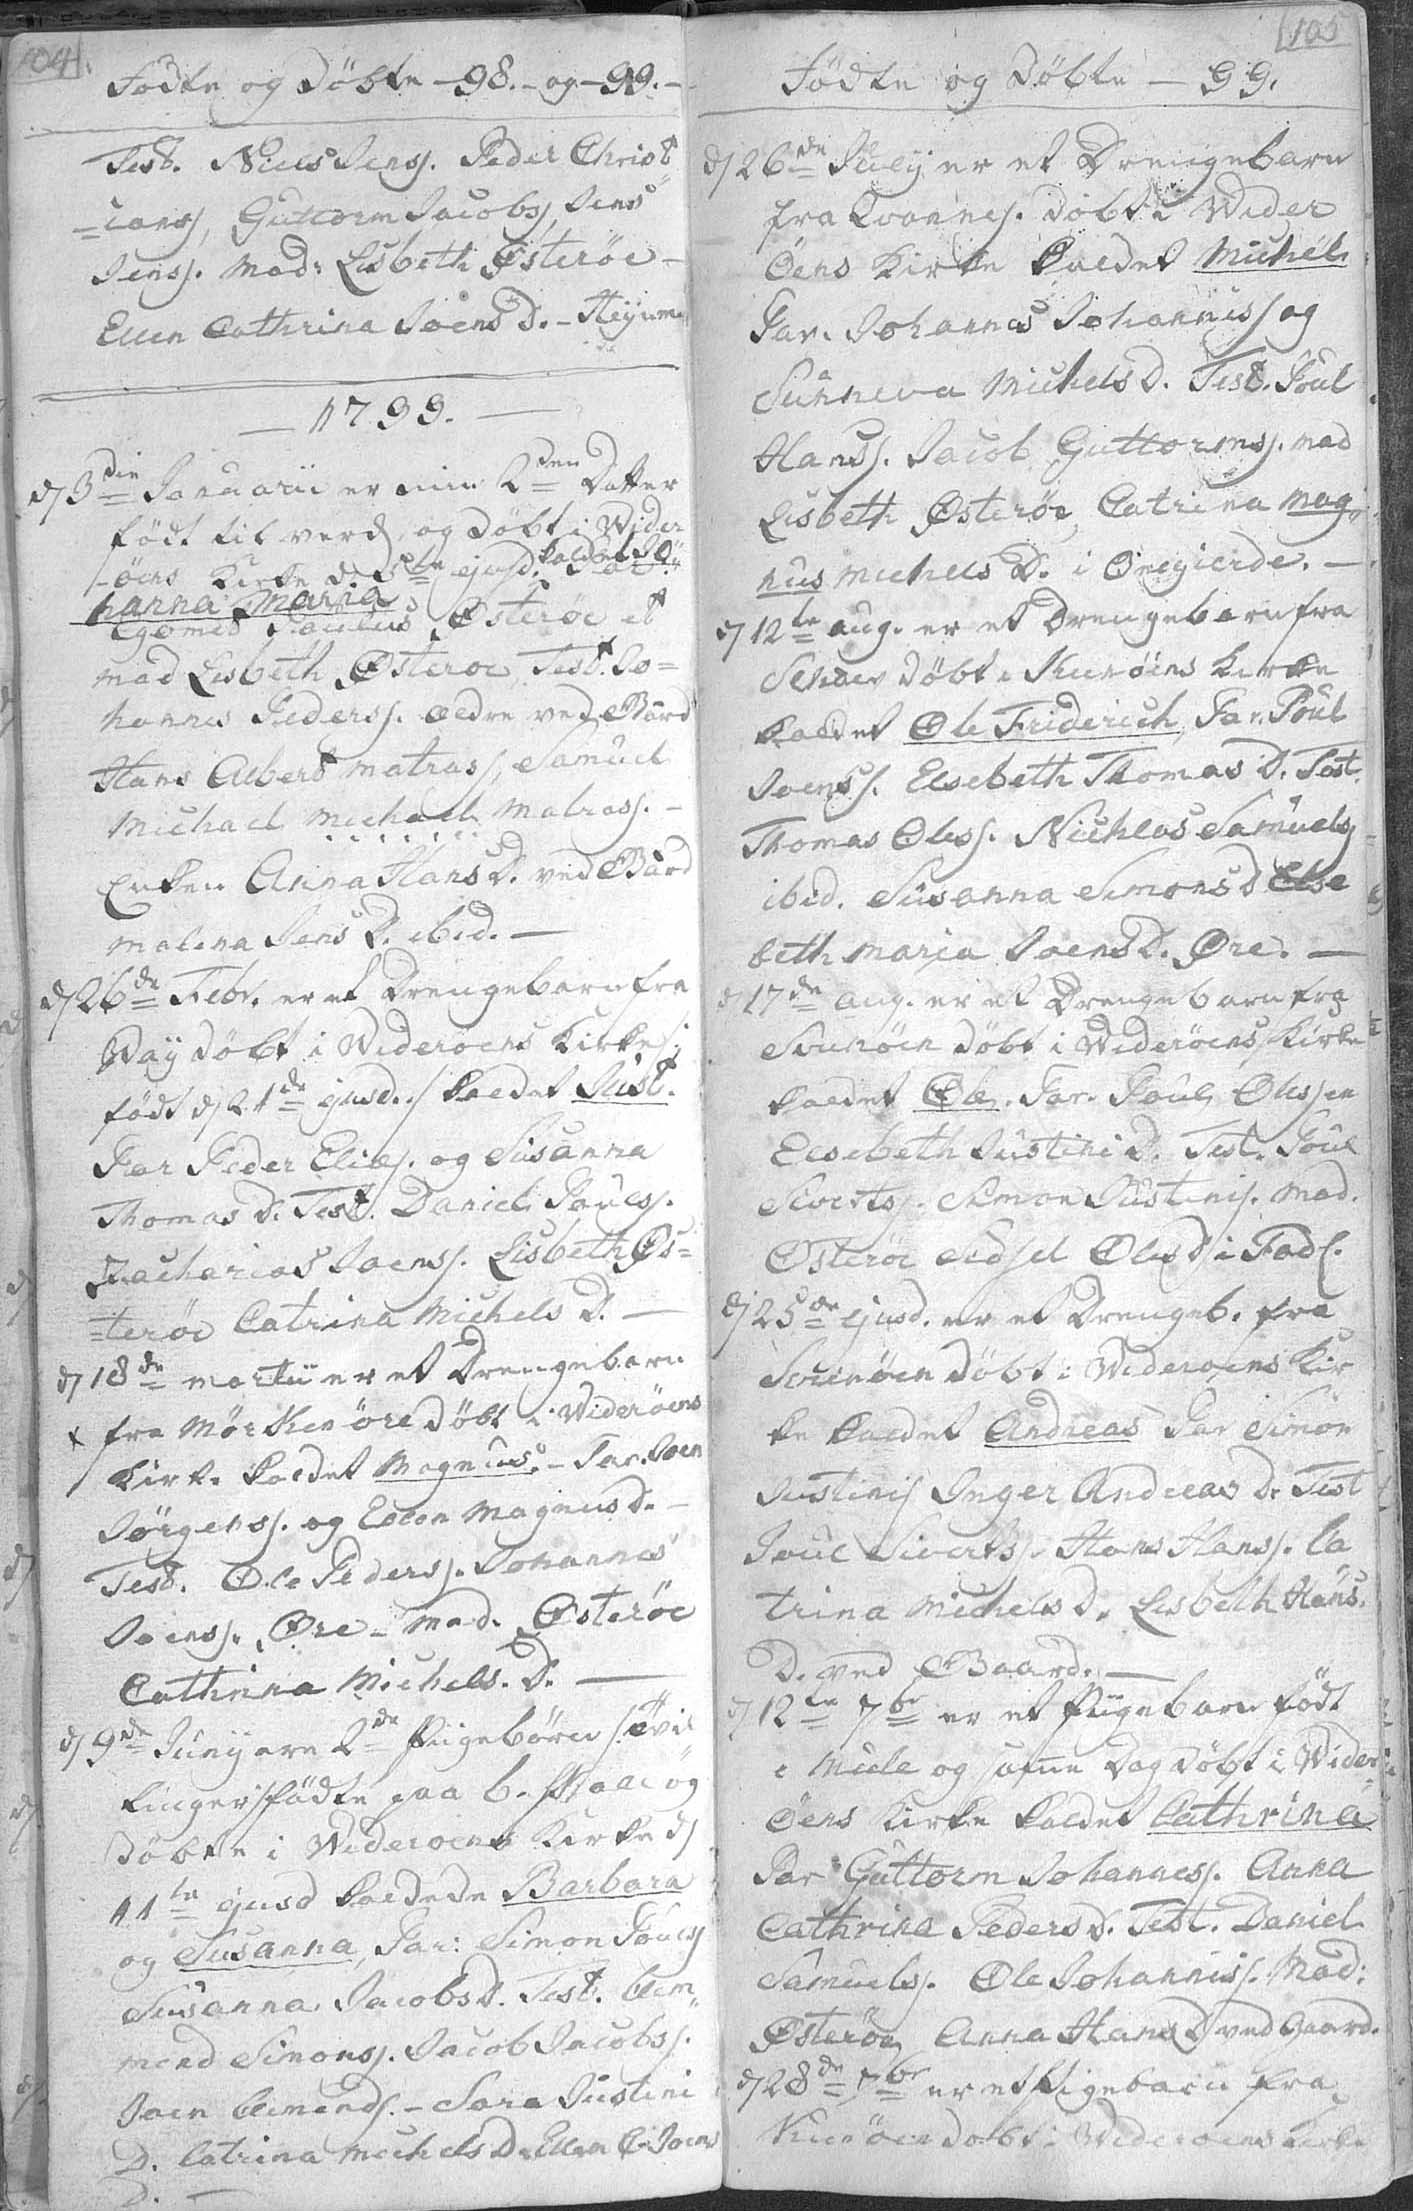 104.
Fødte og Døbte - 98. - og - 99. -
Test. Niels Jens. Peder Christ
-ians, Guttorm Jacobs, Jens
Jens. Mad: Lisbeth Østerøe -
Ellen Cathrina Joens D. -
- 1799. -
d 3die Januarii er min 2den Datter
født til verd. og døbt i Wider
-öens Kirke d. ejusd. kaldet Jo
hanna Maria
Egomet Paulus Østerøe et
mad Lisbeth Østeroe, Test. Jo=
hannes Peders. ældre ved Baard
Hans Albert Matras, Samuel
Michael Michael Matras. -
Enken Anna Hans D. ved Baard
Malena Jens D. ibid. -
d 26de Febr. er et Drengebarn fra
Waÿ döbt i Wideröens Kirke
født d 21de ejusd. / kaldet Just.
For Peder Elias. og Susanna
Thomas D. Test. Daniel Pouls.
Zacharias Joens. Lisbeth Øs=
=terøe Catrina Michels D. -
d 18de Martii er et Drengebarn
x fra Mörkenöre döbt i Wideröens
Kirke kaldet Magnus. - For. Joen
Jörgens. og Ellen Magnus D. -
Test. Ole Peders. Johannes
Joens. Øre - Mad. Østerøe
Cathrina Michels. D. -
d 9de Junÿ ere 2de Pigebörn /: Tvil
linger / fødte paa b. og
Döbte i Wideroens Kirke d
11te ejusd kaldede Barbara
og Susanna, For: Simon Pouls
Susanna Jacobs D. Test.
Simons. Jacob Jacobs.
Joen - Sara Justini
D. Catrina Michels D. Ellen C. Joens
D. -
105
Fødte og Døbte - 99.
d 26de Julÿ er et Drengebarn
fra Qvannes. döbt i Wider
Öens Kirke kaldet Michel
For. Johannes Johannes og
Sunneva Michels D. Test. Poul
Hans. Jacob Guttorms. Mad
Lisbeth Østerøe, Catrina Mag,
nus Michels D. i Öregierde. -
d 12te Aug. er et Drengebarn fra
döbt i Kunöens Kirke
kaldet Ole Friderich, For. Poul
Joens. Elsebeth Thomas D. Test.
Thomas Oles. Nicklas Samuels
ibid. Susanna Simons D Else
beth Maria Joens D. Øre. -
d 17de Aug. er et Drengebarn fra
Svinöen döbt i Wideröens Kirke
kaldet Ole. For. Poul Olesen
Elsebeth Justini D. Test. Poul
Siverts. Simon Justinis. Mad.
Østerøe Sidsel Oles D i
d 25de ejusd. er et Drengeb. fra
Svinöen Döbt i Wideroens Kir
ke kaldet Andreas For Simon
Justinis Inger Andreas D. Test
Poul Siverts. Hans Hans. Ca
trina Michels D. Lisbeth Hans
D. ved Baard. -
d 12te 7br er et Pigebarn födt
i Mule og samme Dag döbt i Wider
Öens Kirke kaldet Cathrina
For Guttorm Johannes. Anna
Cathrina Peders D. Test. Daniel
Samuels. Ole Johannis. Mad:
Østeröe, Anna Hans D ved Gaard.
d 28de 7br er et Pigebarn fra
Kunöen döbt i Wideroens Kirke